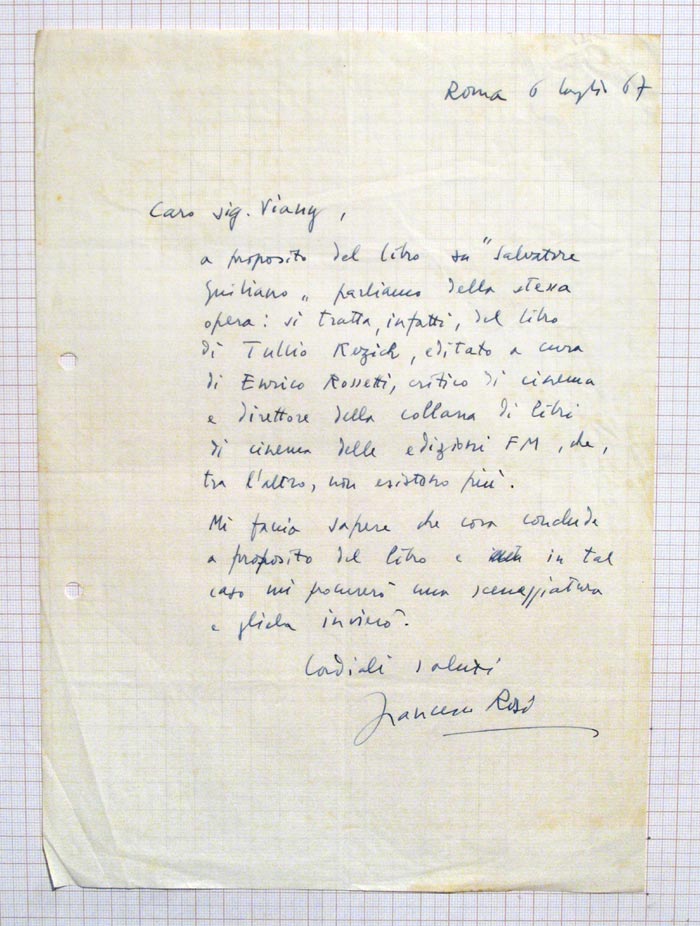 Roma 6 luglio 67
Caro sig. Viany,
a proposito del libro su "Salvatore
Giuliano„ parliamo della stessa
opera: si tratta, infatti, del libro
di Tullio Kezich, editato a cura
di Enrico Rossetti, critico di cinema
e direttore della collana di libri
di cinema delle edizioni FM, che,
tra l'altro, non esistono più.
Mi faccia sapere che cosa conclude
a proposito del libro e in tal
caso mi procurerò una sceneggiatura
e gliela invierò.
Cordiali saluti
Francesco Rosi